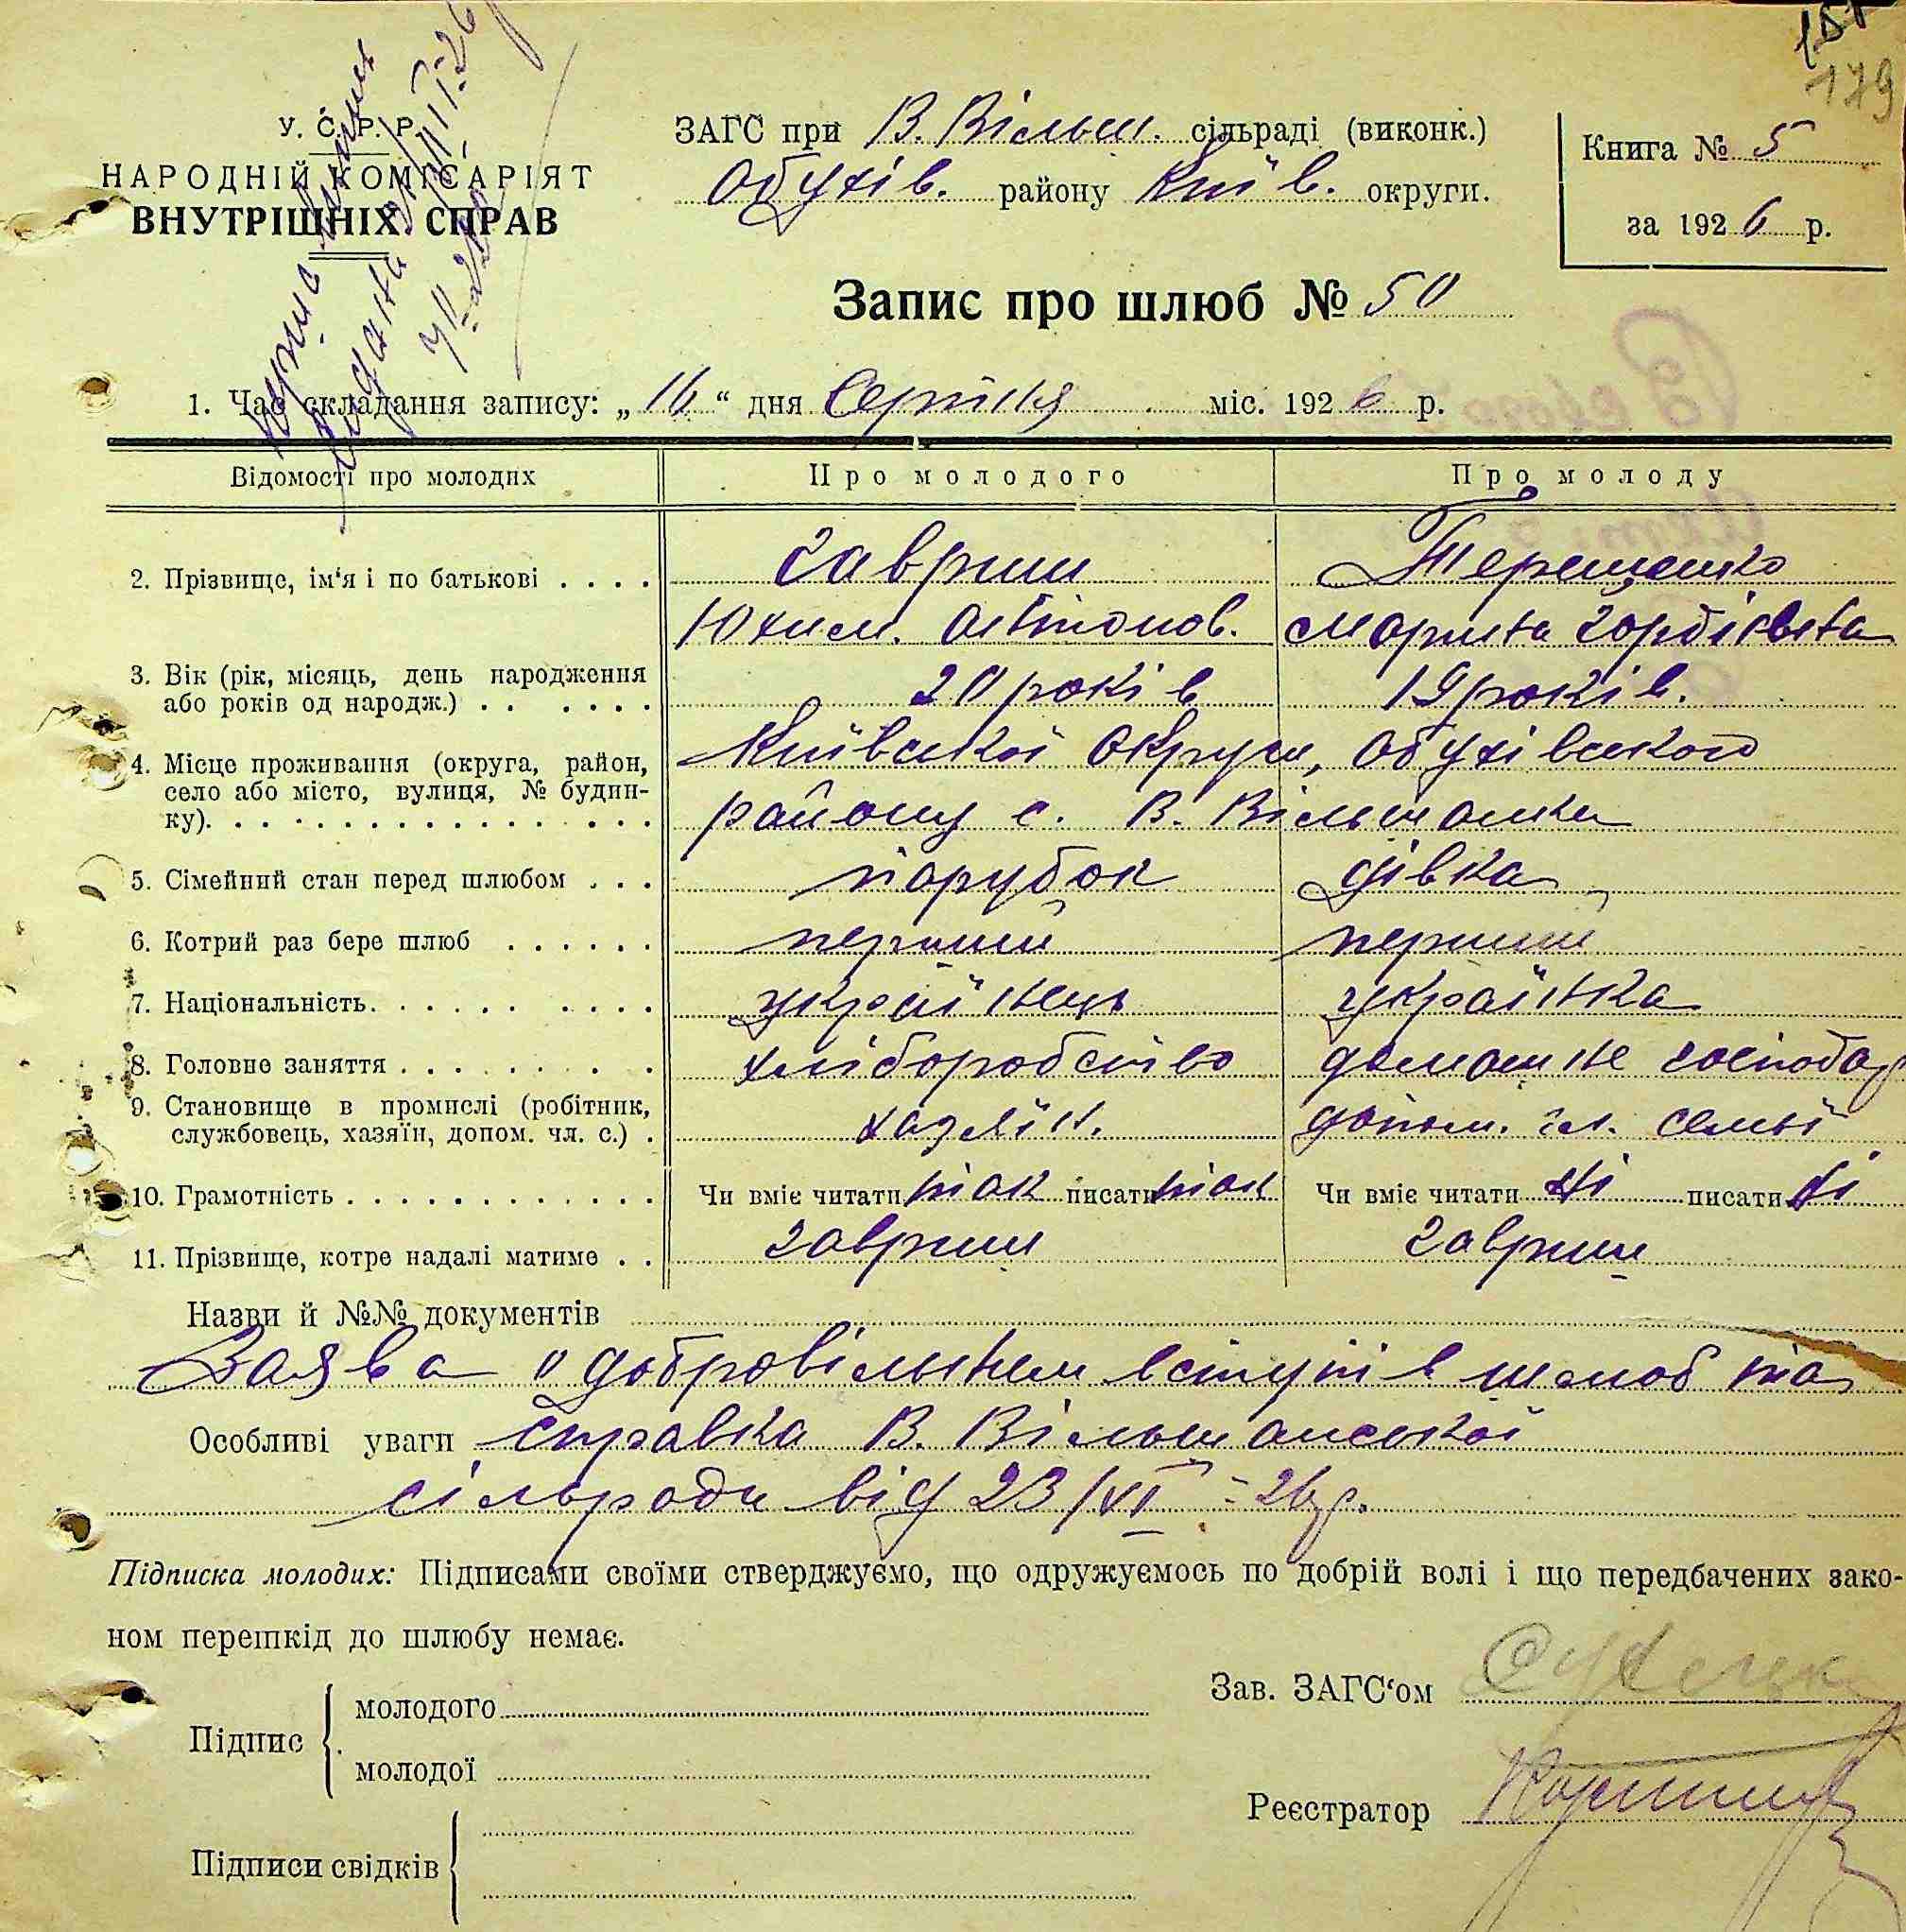 179
У. С. Р. Р.
НАРОДНІЙ КОМІСАРІЯТ
ВНУТРІШНІХ СПРАВ
ЗАГС при В. Вільш. сільраді (виконк.)
Обухів. району Київ. округи.
Книга № 5
за 1926 р.
Запис про шлюб № 50
1. Час складання запису: „16“ дня Серпня міс. 1926 р.
Відомості про молодих Про молодого Про молоду
2. Прізвище, ім‘я і по батькові . . . . Гавриш Терещенко
Юхим. Антонов. Марина Гордієвна
3. Вік (рік, місяць, день народження
або років од народж.) . . . . . . 20 років 19 років.
4. Місце проживання (округа, район, Київської округи, Обухівского
село або місто, вулиця, № будин-
ку). району с. В. Вільшанка
5. Сімейний стан перед шлюбом . . . парубок дівка
6. Котрий раз бере шлюб . . . . . . перший перший
7. Національність. українець українка
8. Головне заняття хліборобство домашне господар
9. Становище в промислі (робітник,
службовець, хазяїн, допом. чл. с.) . хазяїн. допом. чл. семьї
10. Грамотність Чи вміє читати так писати так Чи вміє читати ні писати ні
11. Прізвище, котре надалі матиме . . Гавриш Гавриш
Назви й №№ документів
Заява о добровільнем вступі в шлюб та
Особливі уваги справка В. Вільшанської
сільради від 23/VI - 26 р.
Підписка молодих: Підписами своїми стверджуємо, що одружуємось по добрій волі і що передбачених зако-
ном перешкід до шлюбу немає.
Зав. ЗАГС‘ом
Підпис
молодого
молодої
Реєстратор
Підписи свідків